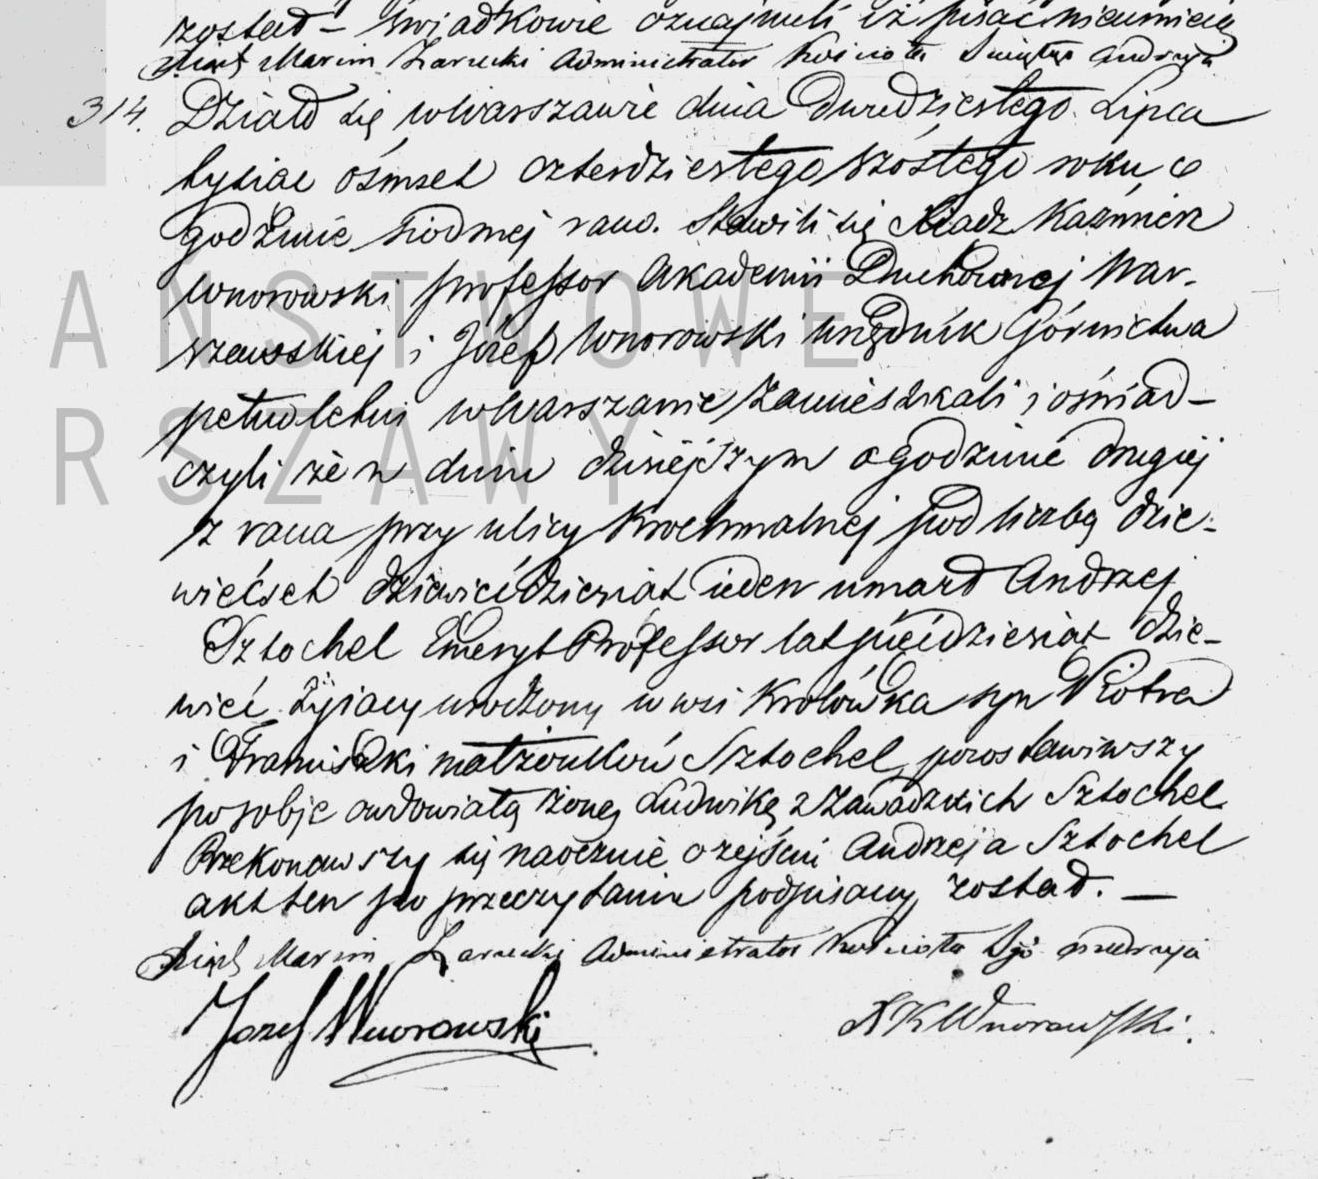 został – Świadkowie oznajmili iż pisać nieumieią
Xiądz Marcin Żarnecki Administrator Kościoła Świętego Andrzeja
314. Działo się w Warszawie dnia Dwudziestego Lipca
tysiac ośmset czterdziestego szóstego roku, o
godzinie siodmej rano. Stawili się Xiadz Kazimierz
Wnorowski professor Akademii Duchownej War-
szawskiej i Józef Wnorowski Urzędnik Górnictwa
pełnoletni w Warszawie zamieszkali i oświad-
czyli że w dniu dzisiejszym o godzinie drugiej
z rana przy ulicy Krochmalnej pod liczbą dzie-
więćset dziewiećdziesiat ieden umarł Andrzej
Sztochel Emeryt Professor lat pięćdziesiat dzie-
wieć żyiacy urodzony w wsi Krolówka syn Piotra
i Franciszki małżonków Sztochel, pozostawiwszy
po sobie owdowiałą żonę Ludwikę z Zawadzkich Sztochel
Przekonawszy się naocznie o zejściu Andrzeja Sztochel
akt ten po przeczytaniu podpisany został. —
Xiądz Marcin Żarnecki Administrator Kościoła Sgo Andrzeja
Jozef Wnorowski
X K Wnorowski.
PAŃSTWOWE
WARSZAWY